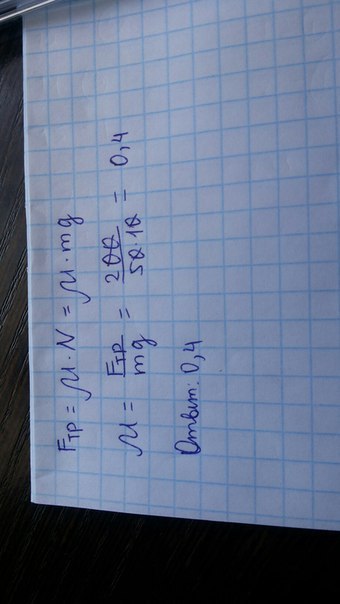 Fтр = μ · N = μ · mg
μ = Fтр / mg = 200 / 50 · 10 = 0,4
Ответ: 0,4